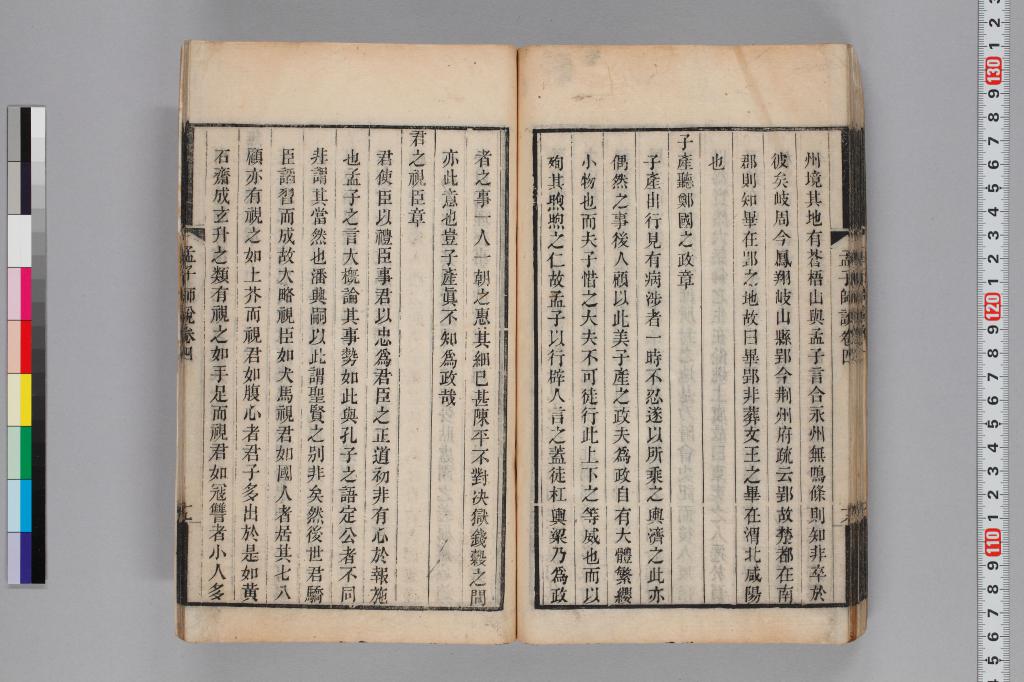 州境其地有蒼梧山與孟子言合永州無鳴條則知非卒於
彼矣岐周今鳳翔岐山縣郢今荆州府疏云郢故楚都在南
郡則知畢在郢之地故曰畢郢非葬文王之畢在渭北咸陽
也
子產聽鄭國之政章
子產出行見有病涉者一時不忍遂以所乘之輿濟之此亦
偶然之事後人顧以此美子產之政夫為政自有大體繁纓
小物也而夫子惜之大夫不可徒行此上下之等威也而以
殉其煦煦之仁故孟子以行辟人言之蓋徒杠輿梁乃為政
者之事一人一朝之惠其細已甚陳平不對決獄錢穀之間
亦此意也豈子產真不知為政哉
君之視臣章
君使臣以禮臣事君以忠為君臣之正道初非有心於報施
也孟子之言大槪論其事勢如此與孔子之語定公者不同
非謂其當然也潘興嗣以此謂聖賢之別非矣然後世君驕
臣謟習而成故大略視臣如犬馬視君如國人者居其七八
顧亦有視之如土芥而視君如腹心者君子多出於是如黃
石齋成玄升之類有視之如手足而視君如寇讐者小人多
孟子師說卷四
孟子師說卷四